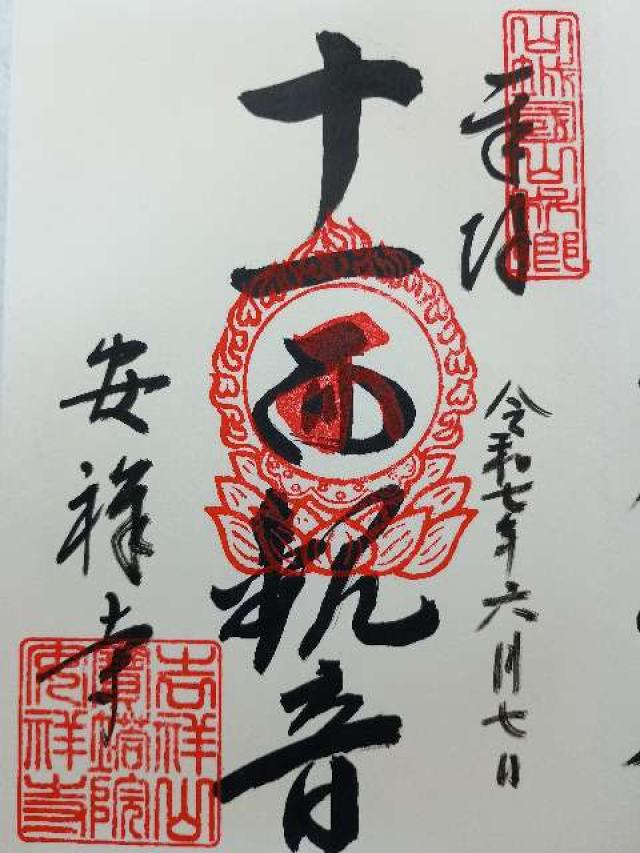 奉拝
山城國山九郎
令和七年六月七日
十一面観音
安祥寺
吉祥山
寶塔院
安祥寺